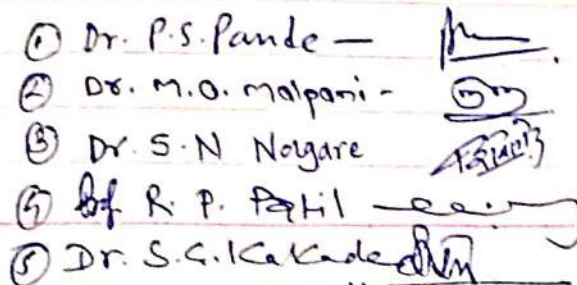 ① Dr. P.S. Pande —
② Dr. M.O. Malpani -
③ Dr. S.N Nagare
④ Prof R. P. Patil
⑤ Dr. S.G. Kakade